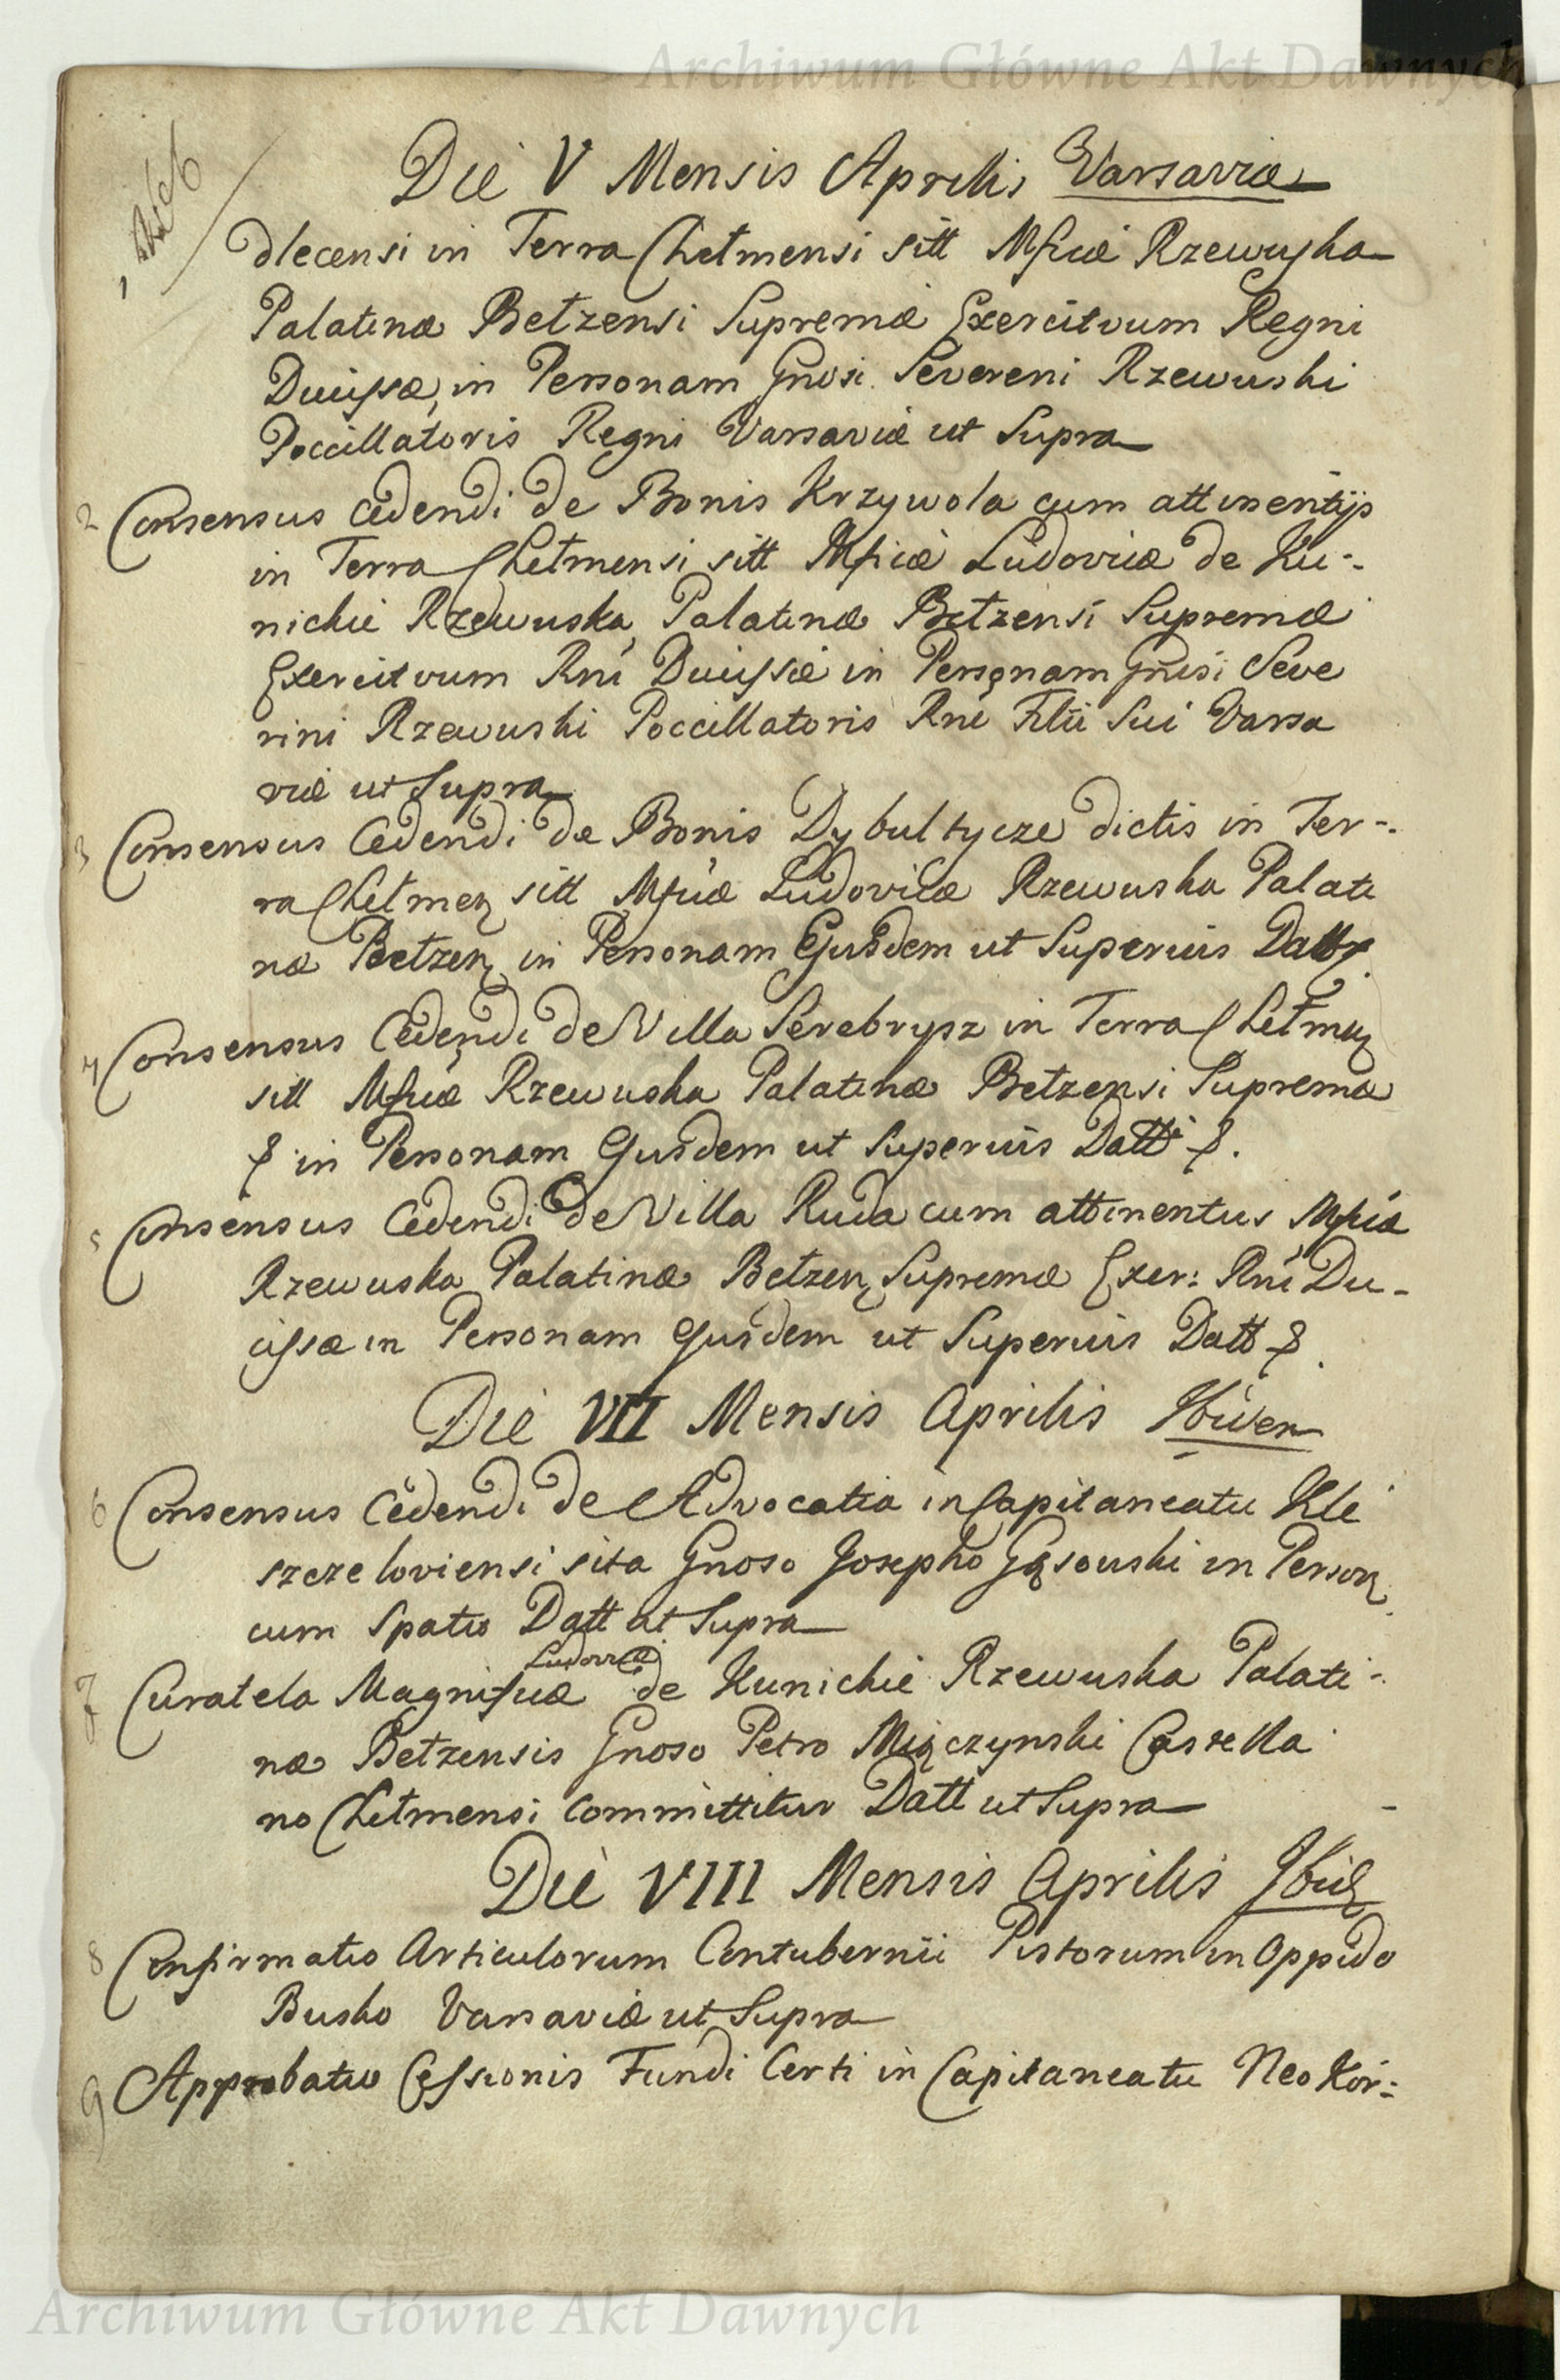 Archiwum Główne Akt Dawnych
Die V Mensis Aprilis Varsaviæ
dlecensi in Terra Chelmensi sitt Mficæ Rzewuska
Palatinæ Betzensi Supremæ Exercituum Regni
Ducissæ, in Personam Gnosi Severeni Rzewuski
Poccillatoris Regni Varsaviæ ut Supra
2 Consensus Cedendi de Bonis Krzywola cum attinentijs
in Terra Chelmensi sitt Mficæ Ludovicæ de Ku-
nickie Rzewuska Palatinæ Betzensi Supremæ
Exercituum Rni Ducissæ in Personam Gnosi Seve
rini Rzewuski Poccillatoris Rni Filii Sui Varsa
viæ ut Supra
3 Consensus Cedendi de Bonis Dybultycze dictis in Ter-
ra Chelmen sitt Mficæ Ludovicæ Rzewuska Palati
næ Betzen in Personam Ejusdem ut Superius Datt
4 Consensus Cedendi de Villa Serebrysz in Terra Chelmen
sitt Mficæ Rzewuska Palatinæ Betzensi Supremæ
in Personam Ejusdem ut Superius Datt
5 Consensus Cedendi de Villa Ruda cum attinentiis Mficæ
Rzewuska Palatinæ Betzen Supremæ Exer: Rni Du-
cissæ in Personam Ejusdem ut Superius Datt
Die VII Mensis Aprilis Ibidem
6 Consensus Cedendi de Advocatia in Capitaneatu Kle
szczeloviensi sita Gnoso Josepho Gąsowski in Person
cum Spatio Datt ut Supra
Ludovicæ
7 Curatela Magnificæ de Kunickie Rzewuska Palati-
næ Betzensis Gnoso Petro Miączynski Castella
no Chelmensi committitur Datt ut Supra
Die VIII Mensis Aprilis Ibid
8 Confirmatio Articulorum Contubernii Pistorum in Oppido
Busko Varsaviæ ut Supra
9 Approbatio Cessionis Fundi Certi in Capitaneatu Neo Kor-
Archiwum Główne Akt Dawnych